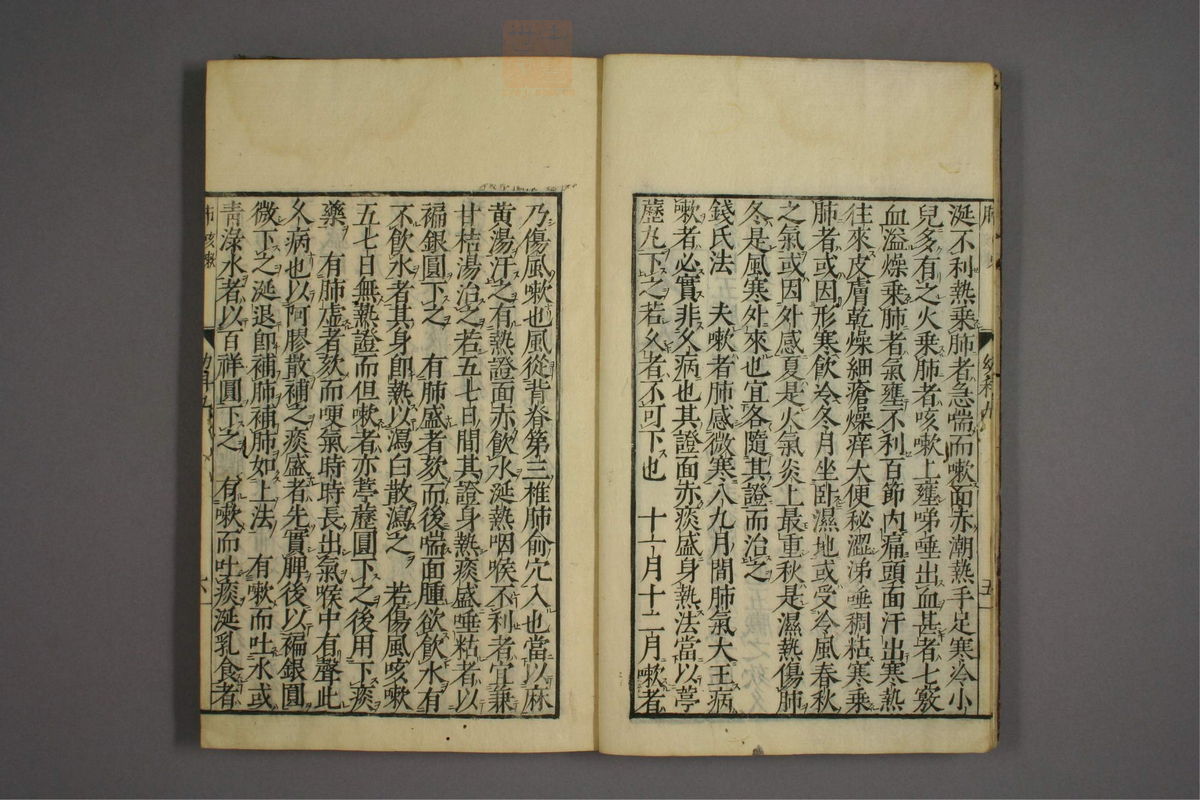 涎不利熱乗肺者急喘而嗽面赤潮熱手足寒冷小
兒多有之火乗肺者咳嗽上壅唾出血甚者七竅
血溢燥乗肺者氣壅不利百節内痛頭面汗出寒熱
往來皮膚乾燥細瘡燥痒大便秘澀涕唾稠粘寒乗
肺者或因形寒飲冷冬月坐卧濕地或受冷風春秋
之氣或因外感夏是火氣炎上最重秋是濕熱傷肺
冬是風寒外來也宜各隨其證而治之
錢氏法　夫嗽者肺感微寒八九月間肺氣大王病
嗽者必實非久病也其證面赤痰盛身熱法當以葶
藶丸下之若久者不可下也　十一月十二月嗽者
五
乃傷風嗽也風從背脊第三椎肺俞穴入也當以麻
黄湯汗之有熱證面赤飲水涎熱咽喉不利者宜兼
甘桔湯治之若五七日間其證身熱痰盛唾粘者以
褊銀圓下之　有肺盛者欬而後喘面腫欲飲水有
不飲水者其身即熱以瀉白散瀉之　若傷風咳嗽
五七日無熱證而但嗽者亦葶藶圓下之後用下痰
藥　有肺虚者欬而哽氣時時長出氣喉中有聲此
久病也以阿膠散補之痰盛者先實脾後以褊銀圓
微下之涎退即補肺補肺如上法　有嗽而吐水或
青渌水者以百祥圓下之　有嗽而吐痰涎乳食者
六